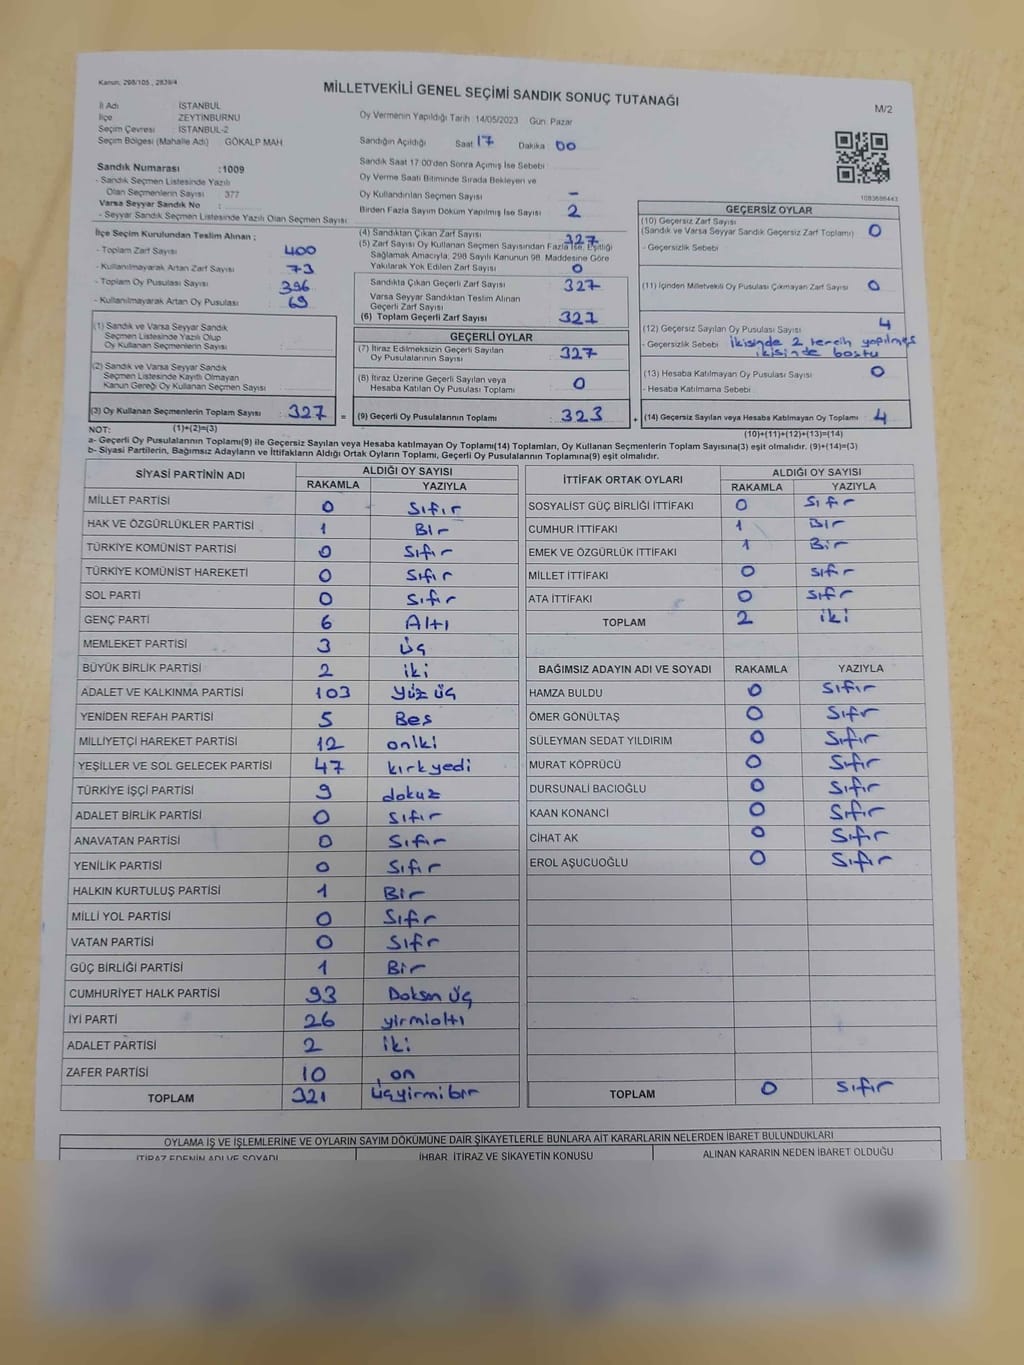 Kanun, 298/105 , 2839/4
MİLLETVEKİLİ GENEL SEÇİMİ SANDIK SONUÇ TUTANAĞI
M/2
İl Adı : İSTANBUL
İlçe : ZEYTİNBURNU
Seçim Çevresi : İSTANBUL-2
Seçim Bölgesi (Mahalle Adı) : GÖKALP MAH
Oy Vermenin Yapıldığı Tarih 14/05/2023 Gün: Pazar
Sandığın Açıldığı Saat 17 Dakika 00
Sandık Saat 17.00'den Sonra Açımış İse Sebebi
Oy Verme Saati Bitiminde Sırada Bekleyen ve
Oy Kullandırılan Seçmen Sayısı –
Birden Fazla Sayım Döküm Yapılmış İse Sayısı 2
Sandık Numarası :1009
- Sandık Seçmen Listesinde Yazılı
Olan Seçmenlerin Sayısı : 377
Varsa Seyyar Sandık No :
- Seyyar Sandık Seçmen Listesinde Yazılı Olan Seçmen Sayısı
1083686443
İlçe Seçim Kurulundan Teslim Alınan ;
- Toplam Zarf Sayısı : 400
- Kullanılmayarak Artan Zarf Sayısı : 73
- Toplam Oy Pusulası Sayısı : 396
- Kullanılmayarak Artan Oy Pusulası : 69
(1) Sandık ve Varsa Seyyar Sandık
Seçmen Listesinde Yazılı Olup
Oy Kullanan Seçmenlerin Sayısı :
(2) Sandık ve Varsa Seyyar Sandık
Seçmen Listesinde Kayıtlı Olmayan
Kanun Gereği Oy Kullanan Seçmen Sayısı :
(3) Oy Kullanan Seçmenlerin Toplam Sayısı : 327 =
(4) Sandıktan Çıkan Zarf Sayısı 327
(5) Zarf Sayısı Oy Kullanan Seçmen Sayısından Fazla İse, Eşitliği
Sağlamak Amacıyla, 298 Sayılı Kanunun 98. Maddesine Göre
Yakılarak Yok Edilen Zarf Sayısı 0
Sandıkta Çıkan Geçerli Zarf Sayısı : 327
Varsa Seyyar Sandıktan Teslim Alınan
Geçerli Zarf Sayısı :
(6) Toplam Geçerli Zarf Sayısı : 327
GEÇERLİ OYLAR
(7) İtiraz Edilmeksizin Geçerli Sayılan
Oy Pusulalarının Sayısı : 327
(8) İtiraz Üzerine Geçerli Sayılan veya
Hesaba Katılan Oy Pusulası Sayısı : 0
(9) Geçerli Oy Pusulalarının Toplamı : 323 +
GEÇERSİZ OYLAR
(10) Geçersiz Zarf Sayısı
(Sandık ve Varsa Seyyar Sandık Geçersiz Zarf Toplamı) : 0
- Geçersizlik Sebebi
(11) İçinden Milletvekili Oy Pusulası Çıkmayan Zarf Sayısı : 0
(12) Geçersiz Sayılan Oy Pusulası Sayısı : 4
- Geçersizlik Sebebi ikisinde 2 tercih yapılmış
ikisinde bostu
(13) Hesaba Katılmayan Oy Pusulası Sayısı : 0
- Hesaba Katılmama Sebebi
(14) Geçersiz Sayılan veya Hesaba Katılmayan Oy Toplamı : 4
NOT: (1)+(2)=(3)
(10)+(11)+(12)+(13)=(14)
a- Geçerli Oy Pusulalarının Toplamı(9) ile Geçersiz Sayılan veya Hesaba katılmayan Oy Toplamı(14) Toplamları, Oy Kullanan Seçmenlerin Toplam Sayısına(3) eşit olmalıdır. (9)+(14)=(3)
b- Siyasi Partilerin, Bağımsız Adayların ve İttifakların Aldığı Ortak Oyların Toplamı, Geçerli Oy Pusulalarının Toplamına(9) eşit olmalıdır.
SİYASİ PARTİNİN ADI ALDIĞI OY SAYISI
RAKAMLA YAZIYLA
MİLLET PARTİSİ 0 Sıfır
HAK VE ÖZGÜRLÜKLER PARTİSİ 1 Bir
TÜRKİYE KOMÜNİST PARTİSİ 0 Sıfır
TÜRKİYE KOMÜNİST HAREKETİ 0 Sıfır
SOL PARTİ 0 Sıfır
GENÇ PARTİ 6 Altı
MEMLEKET PARTİSİ 3 üç
BÜYÜK BİRLİK PARTİSİ 2 iki
ADALET VE KALKINMA PARTİSİ 103 yüz üç
YENİDEN REFAH PARTİSİ 5 Bes
MİLLİYETÇİ HAREKET PARTİSİ 12 oniki
YEŞİLLER VE SOL GELECEK PARTİSİ 47 kırkyedi
TÜRKİYE İŞÇİ PARTİSİ 9 dokuz
ADALET BİRLİK PARTİSİ 0 Sıfır
ANAVATAN PARTİSİ 0 Sıfır
YENİLİK PARTİSİ 0 Sıfır
HALKIN KURTULUŞ PARTİSİ 1 Bir
MİLLİ YOL PARTİSİ 0 Sıfır
VATAN PARTİSİ 0 Sıfır
GÜÇ BİRLİĞİ PARTİSİ 1 Bir
CUMHURİYET HALK PARTİSİ 93 Doksan üç
İYİ PARTİ 26 yirmialtı
ADALET PARTİSİ 2 iki
ZAFER PARTİSİ 10 on
TOPLAM 321 üçyirmibir
İTTİFAK ORTAK OYLARI ALDIĞI OY SAYISI
RAKAMLA YAZIYLA
SOSYALİST GÜÇ BİRLİĞİ İTTİFAKI 0 Sıfır
CUMHUR İTTİFAKI 1 Bir
EMEK VE ÖZGÜRLÜK İTTİFAKI 1 Bir
MİLLET İTTİFAKI 0 sıfır
ATA İTTİFAKI 0 sıfır
TOPLAM 2 iki
BAĞIMSIZ ADAYIN ADI VE SOYADI RAKAMLA YAZIYLA
HAMZA BULDU 0 Sıfır
ÖMER GÖNÜLTAŞ 0 Sıfır
SÜLEYMAN SEDAT YILDIRIM 0 Sıfır
MURAT KÖPRÜCÜ 0 Sıfır
DURSUNALİ BACIOĞLU 0 Sıfır
KAAN KONANCİ 0 Sıfır
CİHAT AK 0 Sıfır
EROL AŞUCUOĞLU 0 Sıfır
TOPLAM 0 Sıfır
OYLAMA İŞ VE İŞLEMLERİNE VE OYLARIN SAYIM DÖKÜMÜNE DAİR ŞİKAYETLERLE BUNLARA AİT KARARLARIN NELERDEN İBARET BULUNDUKLARI
İTİRAZ EDENİN ADI VE SOYADI İHBAR, İTİRAZ VE ŞİKAYETİN KONUSU ALINAN KARARIN NEDEN İBARET OLDUĞU